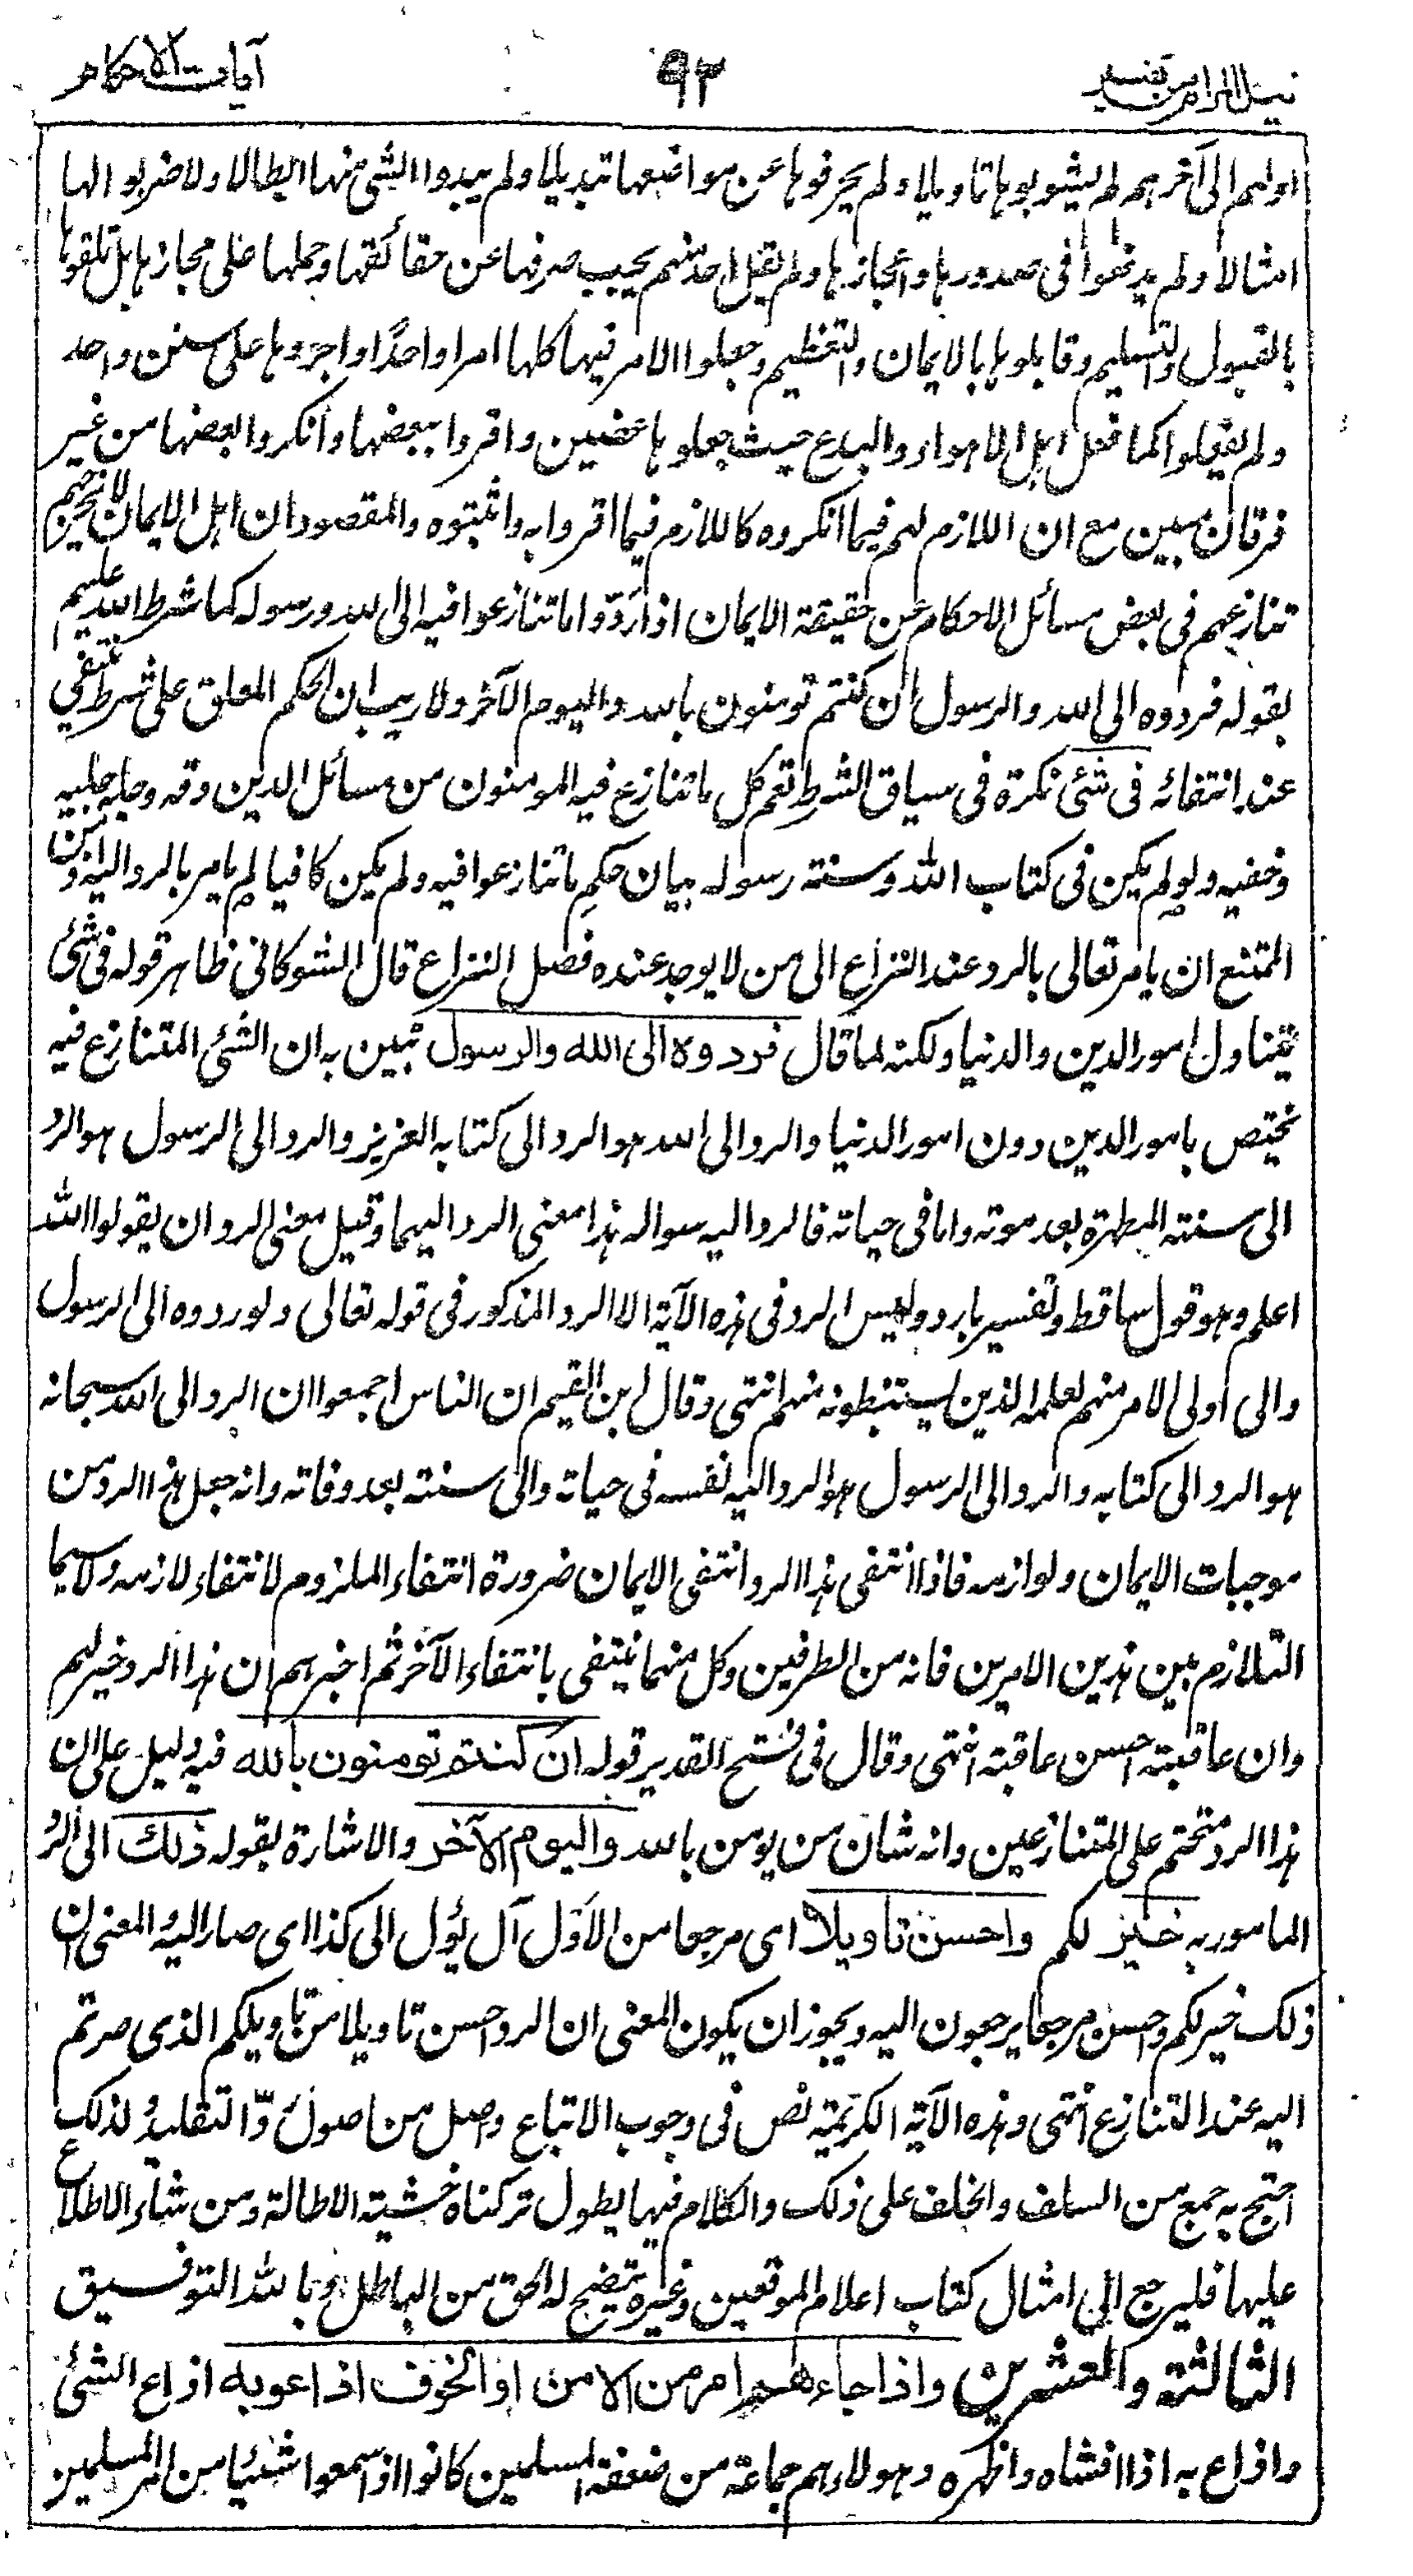 نيل المرام من تفسير ٩٢ آيات الاحكام
اولهم الى آخرهم لم يشوبوها تاويلا ولم يحرفوها عن مواضعها تبديلا ولم يبدوا لشئ منها ابطالا ولا ضربوا لها
امثالا ولم يدفعوا في صدورها واعجازها ولم يقل احد منهم يجب صرفها عن حقائقها وحملها على مجازها بل تلقوها
بالقبول والتسليم وقابلوها بالايمان والتعظيم وجعلوا الامر فيها كلها امرا واحدًا واجروها على سنن واحد
ولم يفعلوا كما فعل اهل الاهواء والبدع حيث جعلوها عضين واقروا ببعضها وانكروا بعضها من غير
فرقان مبين مع ان اللازم لهم فيما انكروه كاللازم فيما اقروا به واثبتوه والمقصود ان اهل الايمان لا يخرجهم
تنازعهم في بعض مسائل الاحكام عن حقيقة الايمان اذا رَدّوا ما تنازعوا فيه الى الله ورسوله كما شرط الله عليهم
بقوله فردوه الى الله والرسول ان كنتم تومنون بالله واليوم الآخر ولا ريب ان الحكم المعلق على شرط ينتفي
عند انتفائه في شئ نكرة في سياق الشرط تعم كل ما تنازع فيه المومنون من مسائل الدين دقه وجله جليه
وخفيه ولو لم يكن في كتاب الله وسنة رسوله بيان حكم ما تنازعوا فيه ولم يكن كافيا لم يامر بالرد اليه ومن
الممتنع ان يامر تعالى بالرد عند النزاع الى من لا يوجد عنده فصل النزاع قال الشوكاني ظاهر قوله في شئ
يتناول امور الدين والدنيا ولكنه لما قال فردوه الى الله والرسول تبين به ان الشئ المتنازع فيه
يختص بامور الدين دون امور الدنيا والرد الى الله هو الرد الى كتابه العزيز والرد الى الرسول هو الرد
الى سنته المطهرة بعد موته واما في حياته فالرد اليه سواله هذا معنى الرد اليهما وقيل معنى الرد ان يقولوا الله
اعلم وهو قول ساقط وتفسير بارد وليس الرد في هذه الآية الا الرد المذكور في قوله تعالى ولو ردوه الى الرسول
والى اولى الامر منهم لعلمه الذين يستنبطونه منهم انتهى وقال ابن القيم ان الناس اجمعوا ان الرد الى الله سبحانه
هو الرد الى كتابه والرد الى الرسول هو الرد اليه نفسه في حياته والى سنته بعد وفاته وانه جعل هذا الرد من
موجبات الايمان ولوازمه فاذا انتفى هذا الرد انتفى الايمان ضرورة انتفاء الملزوم لانتفاء لازمه ولاسيما
التلازم بين هذين الامرين فانه من الطرفين وكل منهما ينتفى بانتفاء الآخر ثم اخبرهم ان هذا الرد خير لهم
وان عاقبته احسن عاقبة انتهى وقال في فتح القدير قوله ان كنتم تومنون بالله فيه دليل على ان
هذا الرد متحتم على المتنازعين وانه شان من يومن بالله واليوم الآخر والاشارة بقوله ذلك الى الرد
المامور به خير لكم واحسن تاويلا اى مرجعا من الاَوْل آل يؤل الى كذا اى صار اليه والمعنى ان
ذلك خير لكم واحسن مرجعا يرجعون اليه ويجوز ان يكون المعنى ان الرد احسن تاويلا من تاويلكم الذى صرتم
اليه عند التنازع انتهى وهذه الآية الكريمة نص في وجوب الاتباع واصل من اصول ردّ التقليد ولذلك
احتج به جمع من السلف والخلف على ذلك والكلام فيها يطول تركناه خشية الاطالة ومن شاء الاطلاع
عليها فليرجع الى امثال كتاب اعلام الموقعين وغيره يتضح له الحق من الباطل وبالله التوفيق
الثالثة والعشرين واذا جاءهم امر من الامن او الخوف اذاعوا به اذاع الشئ
واذاع به اذا افشاه واظهره وهولاء هم جماعة من ضعفة المسلمين كانوا اذا سمعوا شيئا من امر المسلمين